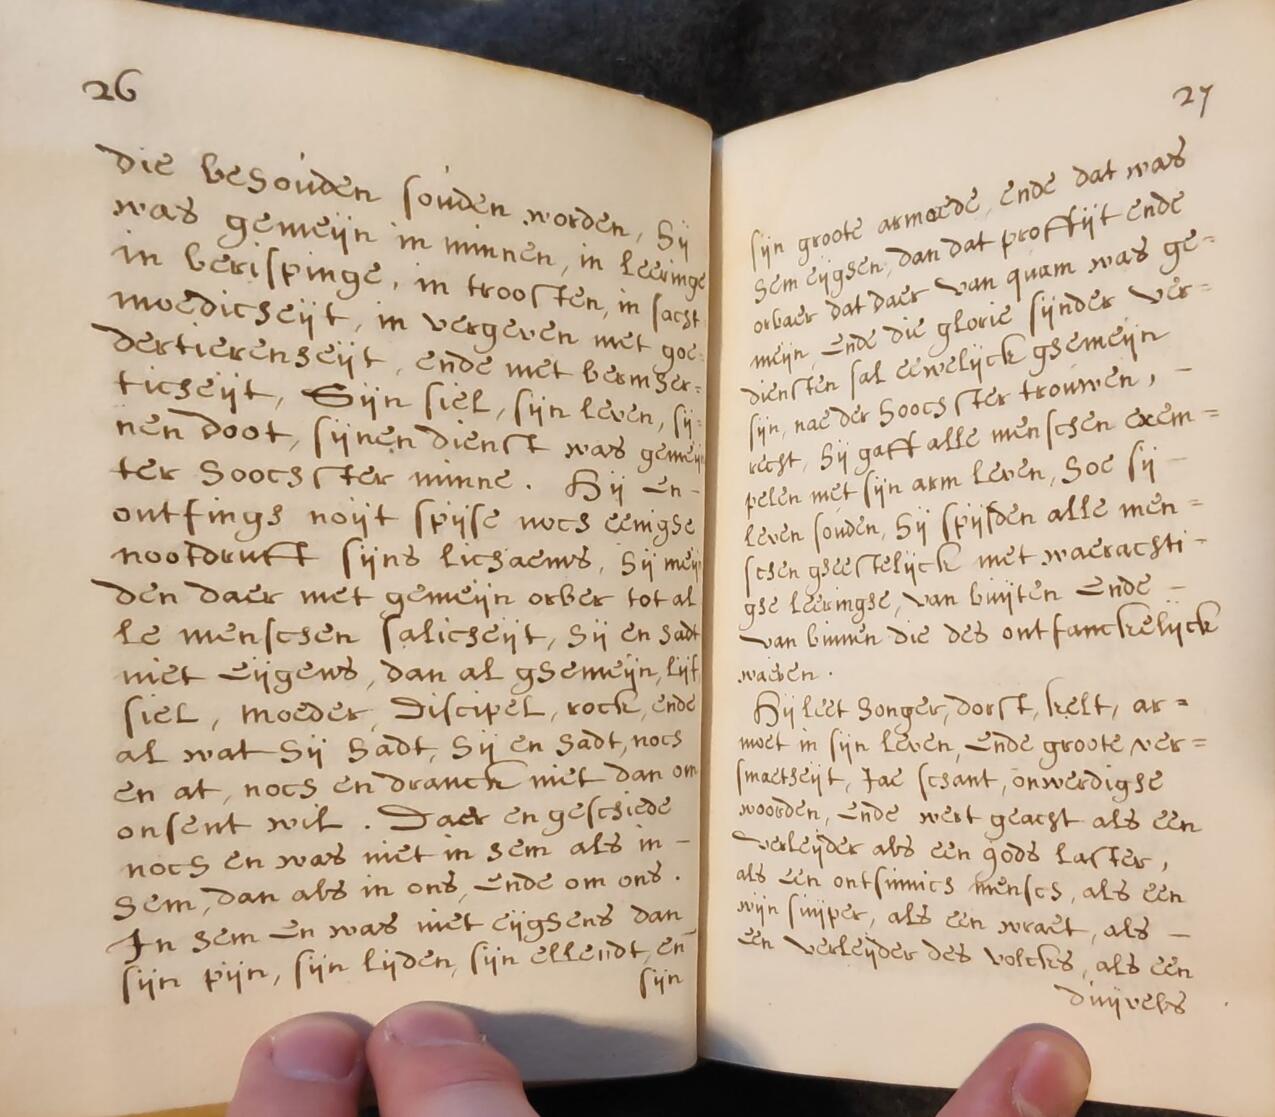 26
die behouden souden worden, hij
was gemeijn in minnen, in leeringe
in berispinge, in troosten, in sacht
moedicheijt, in vergeven met goe=
dertierenheijt, ende met bermher=
ticheijt, Sijn siel, sijn leven, sij=
nen doot, sijnen dienst was gemeijn
ter hoochster minne. Hij en-
ontfingh noijt spijse noch eenighe
nootdruft sijns lichaems, hij meij
den daer met gemeijn orber tot al
le menschen salicheijt, hij en hadt
niet eijgens, dan al ghemeijn, lijf
siel, moeder, discipel, rock, ende
al wat hij hadt, hij en hadt, noch
en at, noch en dranck niet dan om
onsent wil. Daer en geschiede
noch en was niet in hem als in -
hem, dan als in ons, ende om ons.
In hem en was niet eijghens dan
sijn pijn, sijn lijden, sijn ellendt, en
sijn
27
sijn groote armoede, ende dat was
hem eijghen, dan dat proffijt ende
orbaer dat daer van quam was ge=
meijn, Ende die glorie sijnder ver=
diensten sal eewelijck ghemeijn
sijn, nae der hoochster trouwen, -
recht, hij gaff alle menschen exem=
pelen met sijn arm leven, hoe sij -
leven souden, hij spijsden alle men=
schen gheestelijck met waerachti-
ghe leeringhe, van buijten Ende -
van binnen die des ontfanckelijck
waeren.
Hij leet honger, dorst, kelt, ar=
moet in sijn leven, Ende groote ver=
smaetheijt, Jae schant, onwerdighe
woorden, Ende wert geacht als een
verleijder als een gods laster,
als Een ontsinnich mensch, als een
wijn suijper, als een wraet, als -
een verleijder des volcks, als een
duijvels